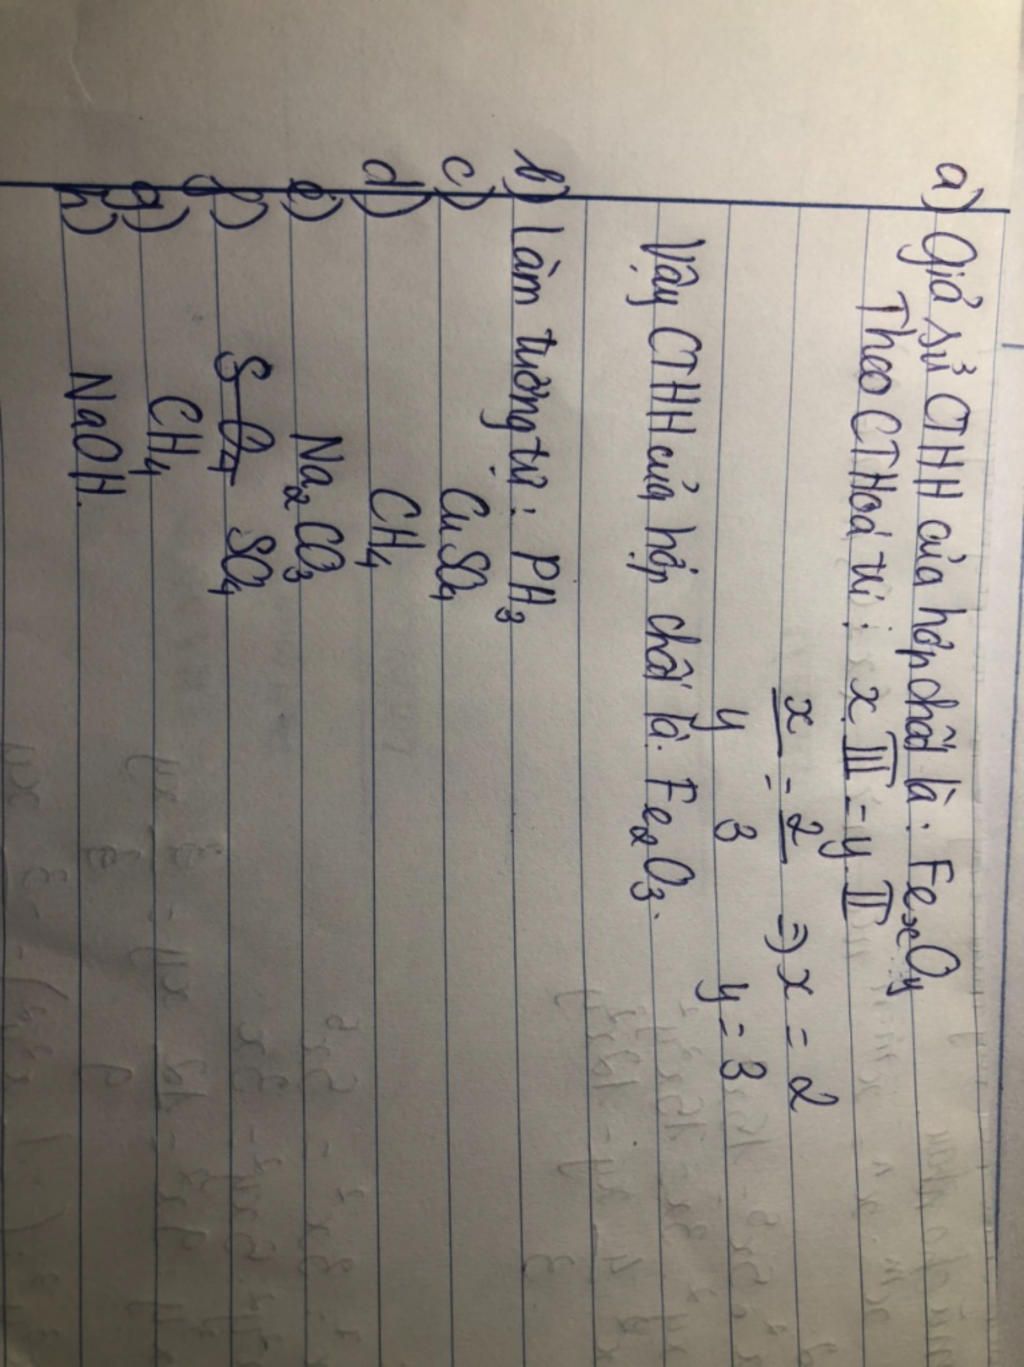 a) Giả sử CTHH của hợp chất là: FeₓOy
Theo CTHoá trị: x.III = y.II
x/y = 2/3 => x = 2
y = 3
Vậy CTHH của hợp chất là: Fe₂O₃.
b) Làm tương tự: PH₃
c) CuSO₄
d) CH₄
e) Na₂CO₃
f) SO₄ SO₄
g) CH₄
h) NaOH.